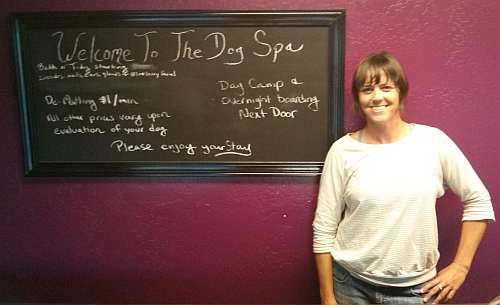 Welcome To The Dog Spa
Bath & Tidy starting
Includes nails, ears, glands & blueberry facial
De-Matting $1/min
All other prices vary upon
evaluation of your dog
Day Camp &
overnight boarding
Next Door
Please enjoy your Stay